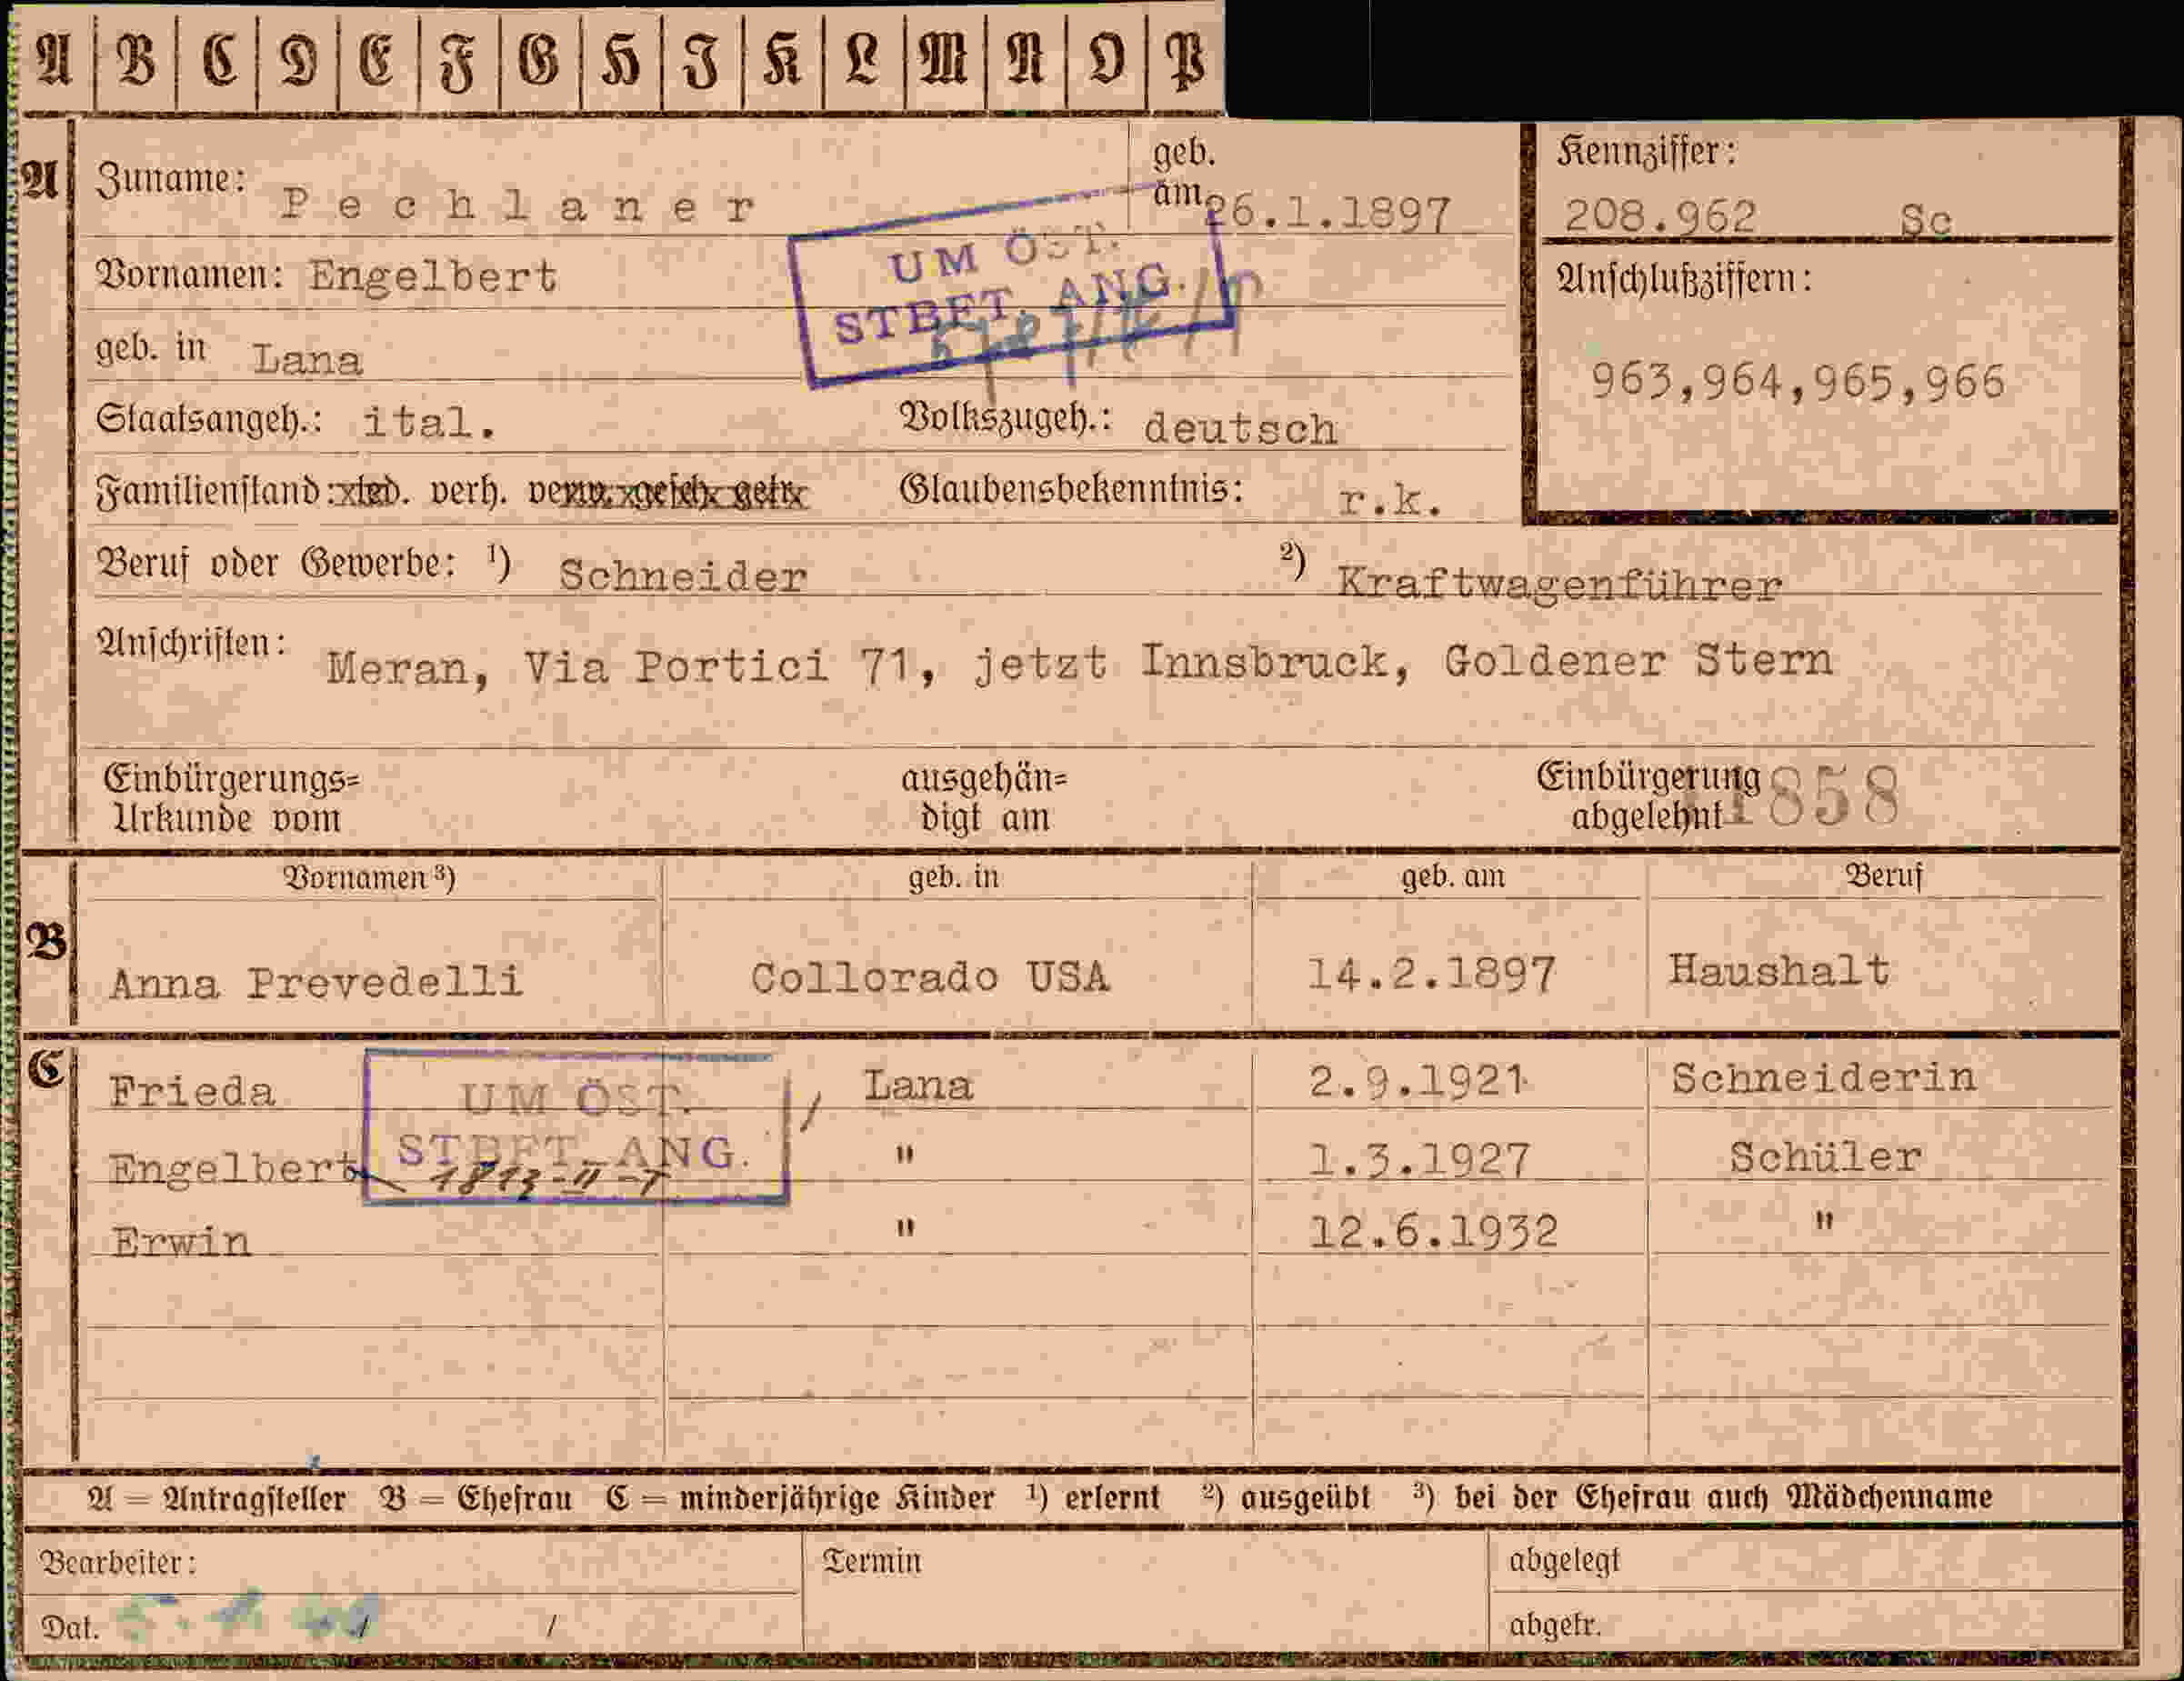 A B C D E F G H I K L M N O P
A
Zuname: Pechlaner
geb. am 26.1.1897
Kennziffer:
208.962 Sc
UM ÖST.
STBFT. ANG.
Vornamen: Engelbert
Anschlußziffern:
963,964,965,966
geb. in Lana
Staatsangeh.: ital. Volkszugeh.: deutsch
Familienstand: led. verh. verw. gesch. getr. Glaubensbekenntnis: r.k.
Beruf oder Gewerbe: 1) Schneider 2) Kraftwagenführer
Anschriften: Meran, Via Portici 71, jetzt Innsbruck, Goldener Stern
Einbürgerungs= ausgehän= Einbürgerung
Urkunde vom digt am abgelehnt 1858
Vornamen 3) geb. in geb. am Beruf
B
Anna Prevedelli Collorado USA 14.2.1897 Haushalt
C
Frieda Lana 2.9.1921 Schneiderin
UM ÖST.
STBFT. ANG.
Engelbert " 1.3.1927 Schüler
1813-II-
Erwin " 12.6.1932 "
A = Antragsteller B = Ehefrau C = minderjährige Kinder 1) erlernt 2) ausgeübt 3) bei der Ehefrau auch Mädchenname
Bearbeiter: Termin abgelegt
Dat. / / abgetr.